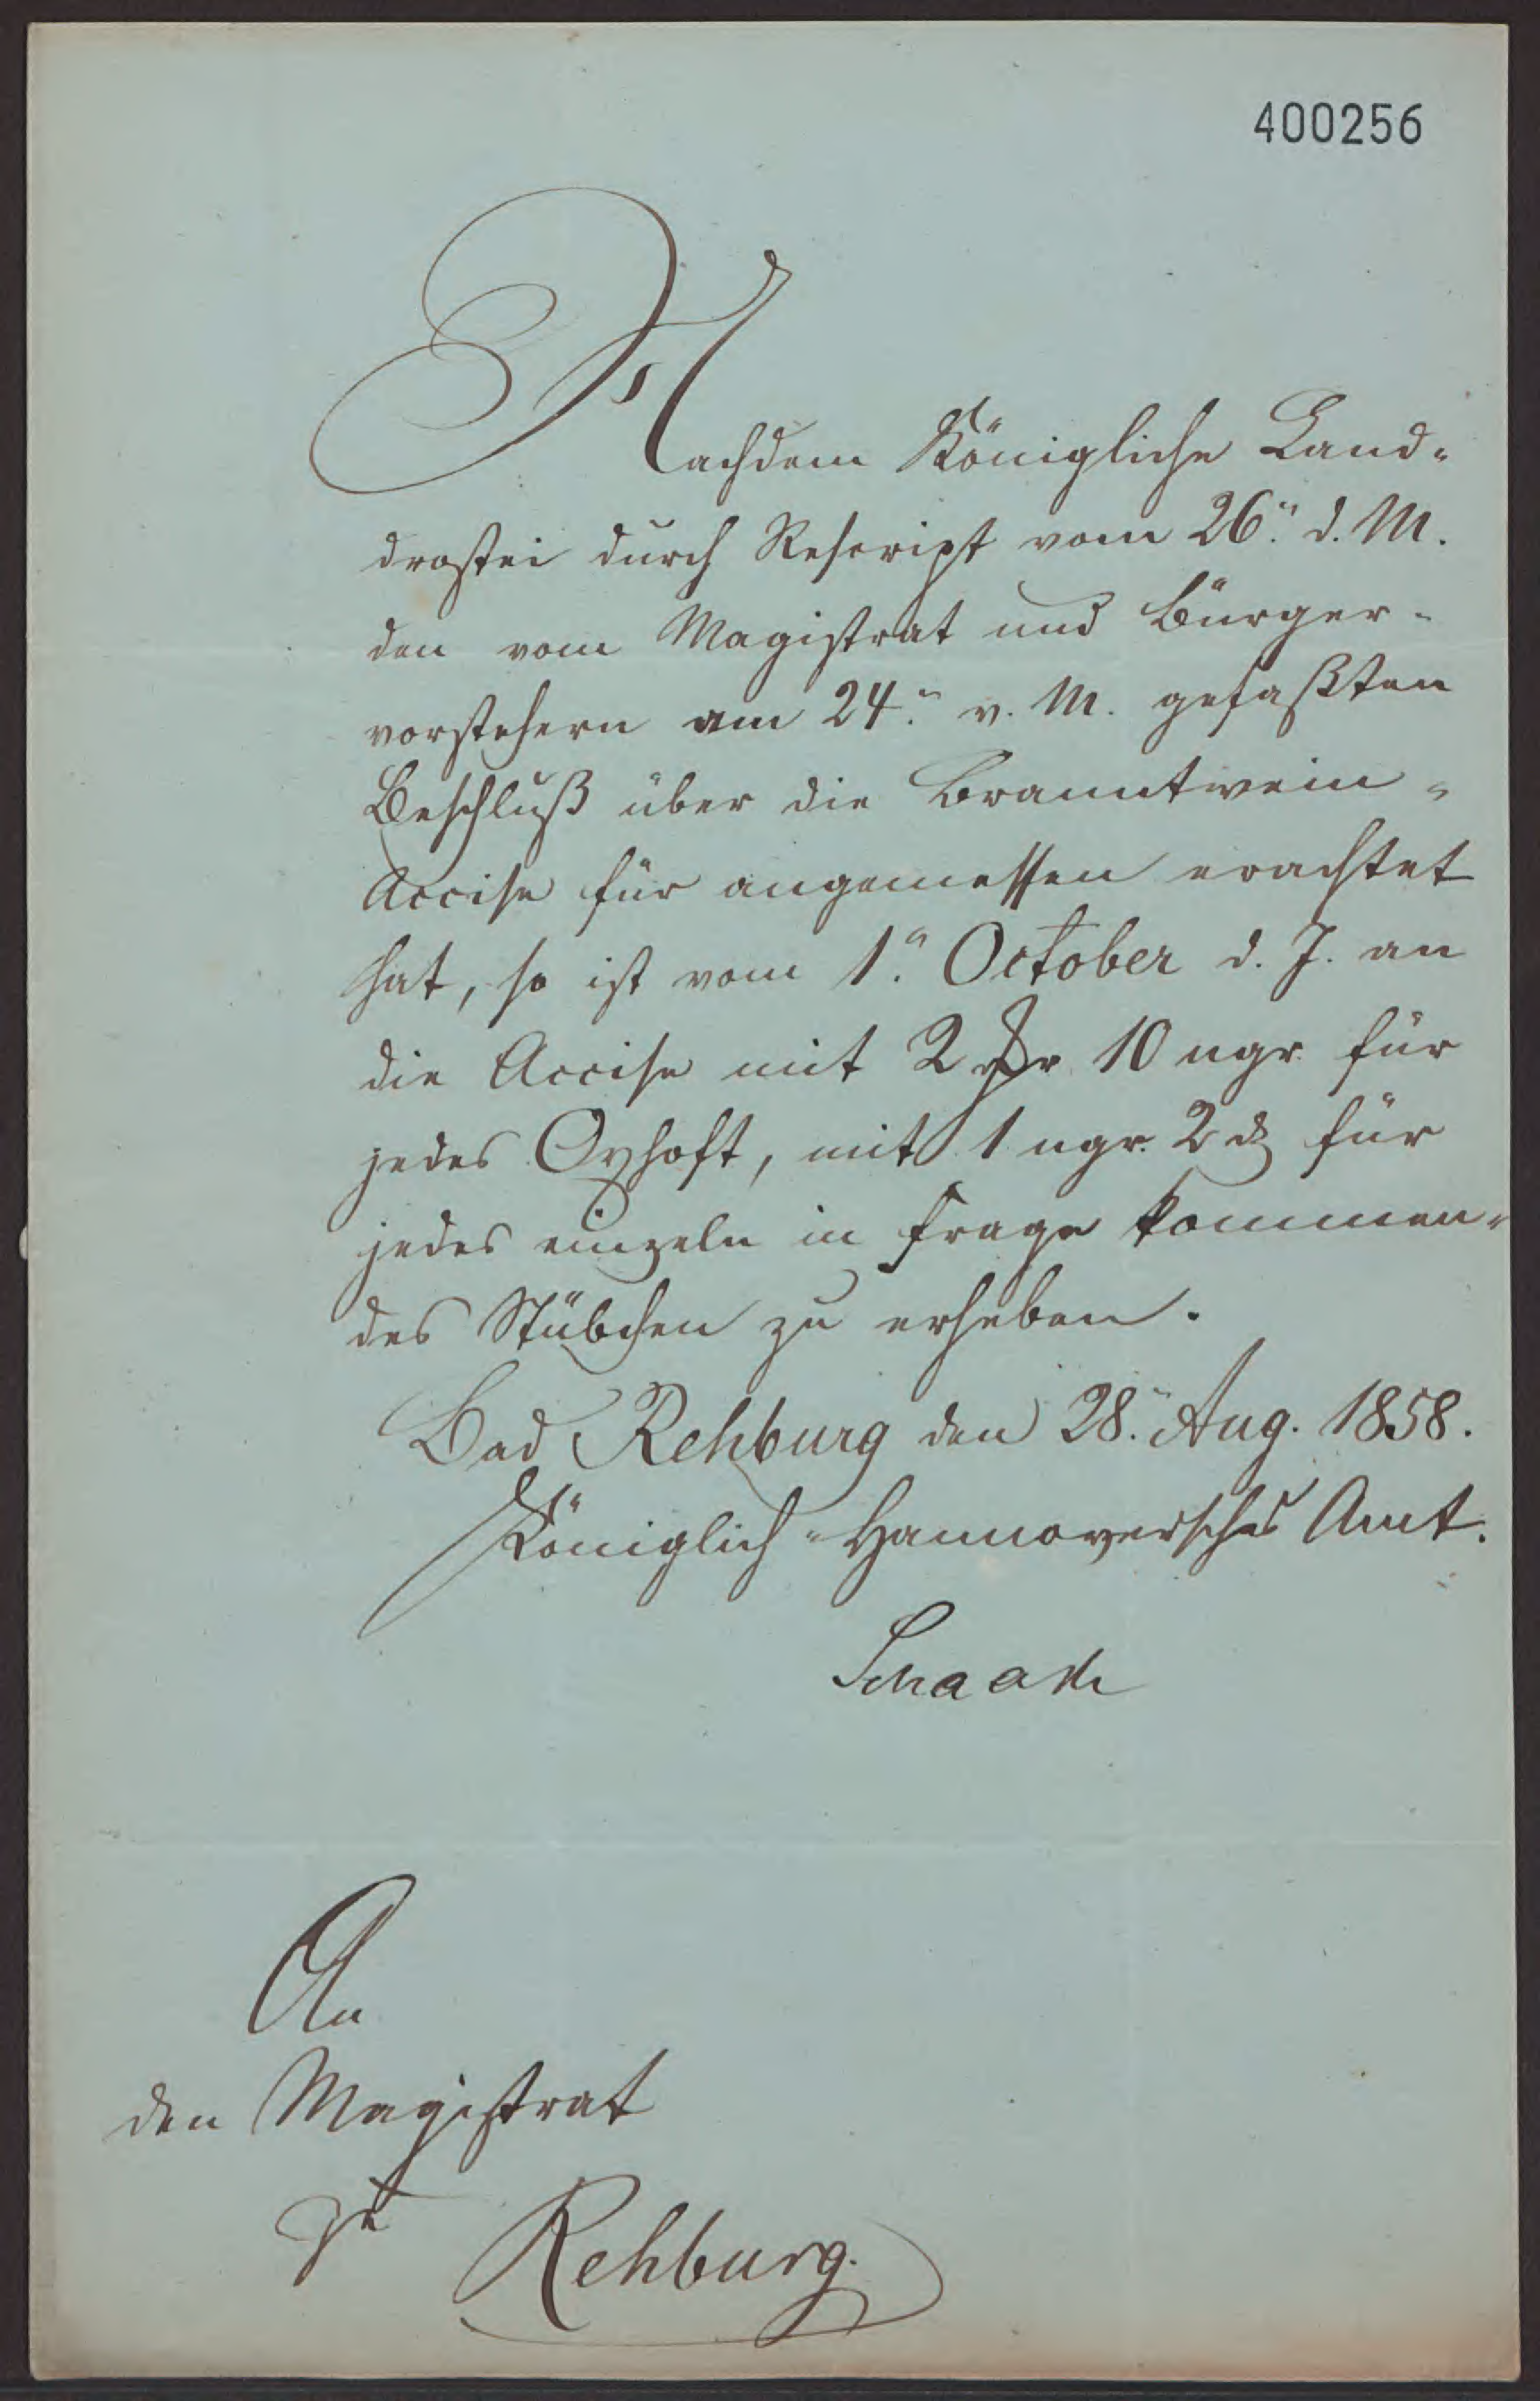 400256
Nachdem Königliche Land-
drostei durch Rescript vom 26. d. M.
den vom Magistrat und Bürger-
vorstehern am 24. v. M. gefaßten
Beschluß über die Branntwein-
Accise für angemessen erachtet
hat, so ist vom 1. October d. J. an
die Accise mit 2 ₰r 10 ngr. für
jedes Oxhoft, mit 1 ngr. 2 ₰ für
jedes einzeln in Frage kommen-
des Stübchen zu erheben.
Bad Rehburg den 28. Aug. 1858.
Königlich-Hannoversches Amt.
An
den Magistrat
zu
Rehburg.